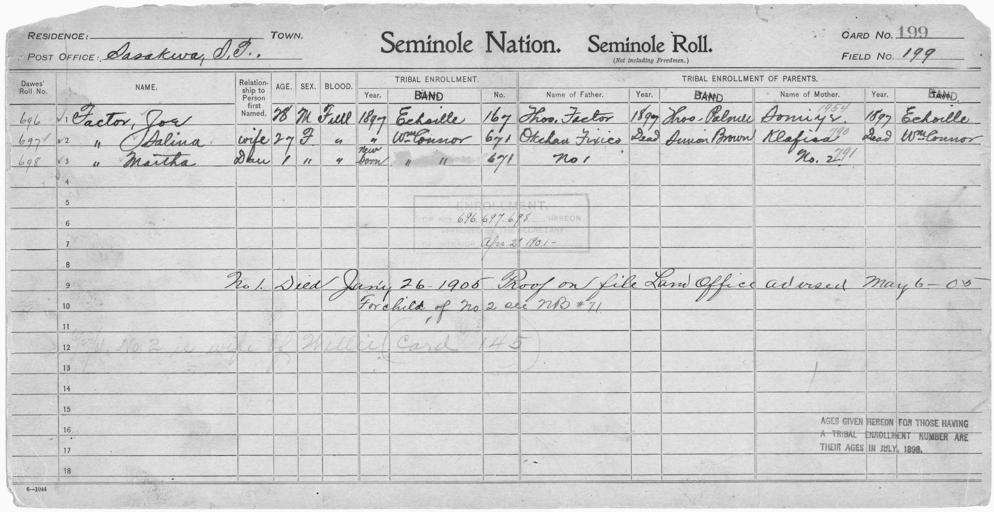 RESIDENCE: TOWN. Seminole Nation. Seminole Roll. CARD NO. 199
POST OFFICE: Sasakwa, I.T., (Not Including Freedmen.) FIELD NO. 199
Dawes' Roll No. NAME. Relationship to Person first Named. AGE. SEX. BLOOD. TRIBAL ENROLLMENT. TRIBAL ENROLLMENT OF PARENTS.
Year. BAND No. Name of Father. Year. BAND Name of Mother. Year. BAND
696 1 Factor, Joe 28 M Full 1897 Echoille 167 Thos. Factor 1897 Thos. Palmer 1897 Echoille
697 2 " Salina wife 27 F " " Wm Connor 671 Okchan Fixico Dead Simion Brown Klafissa 790 Dead Wm Connor
698 3 " Martha Dau 1 " " New born " " 671 No 1 No. 2 791
4
5
6
7
8
ENROLLMENT.
696.697.698 HEREON
Apr 2 1901
9 No 1. Died Jan'y 26-1905 Proof on file Land Office advised May 6-05
10 For child of No 2 see NB #71
11
12 No 2 is wife of Willie Card 145
13
14
15
16
17
18
AGES GIVEN HEREON FOR THOSE HAVING
A TRIBAL ENROLLMENT NUMBER ARE
THEIR AGES IN JULY, 1898.
6—1044